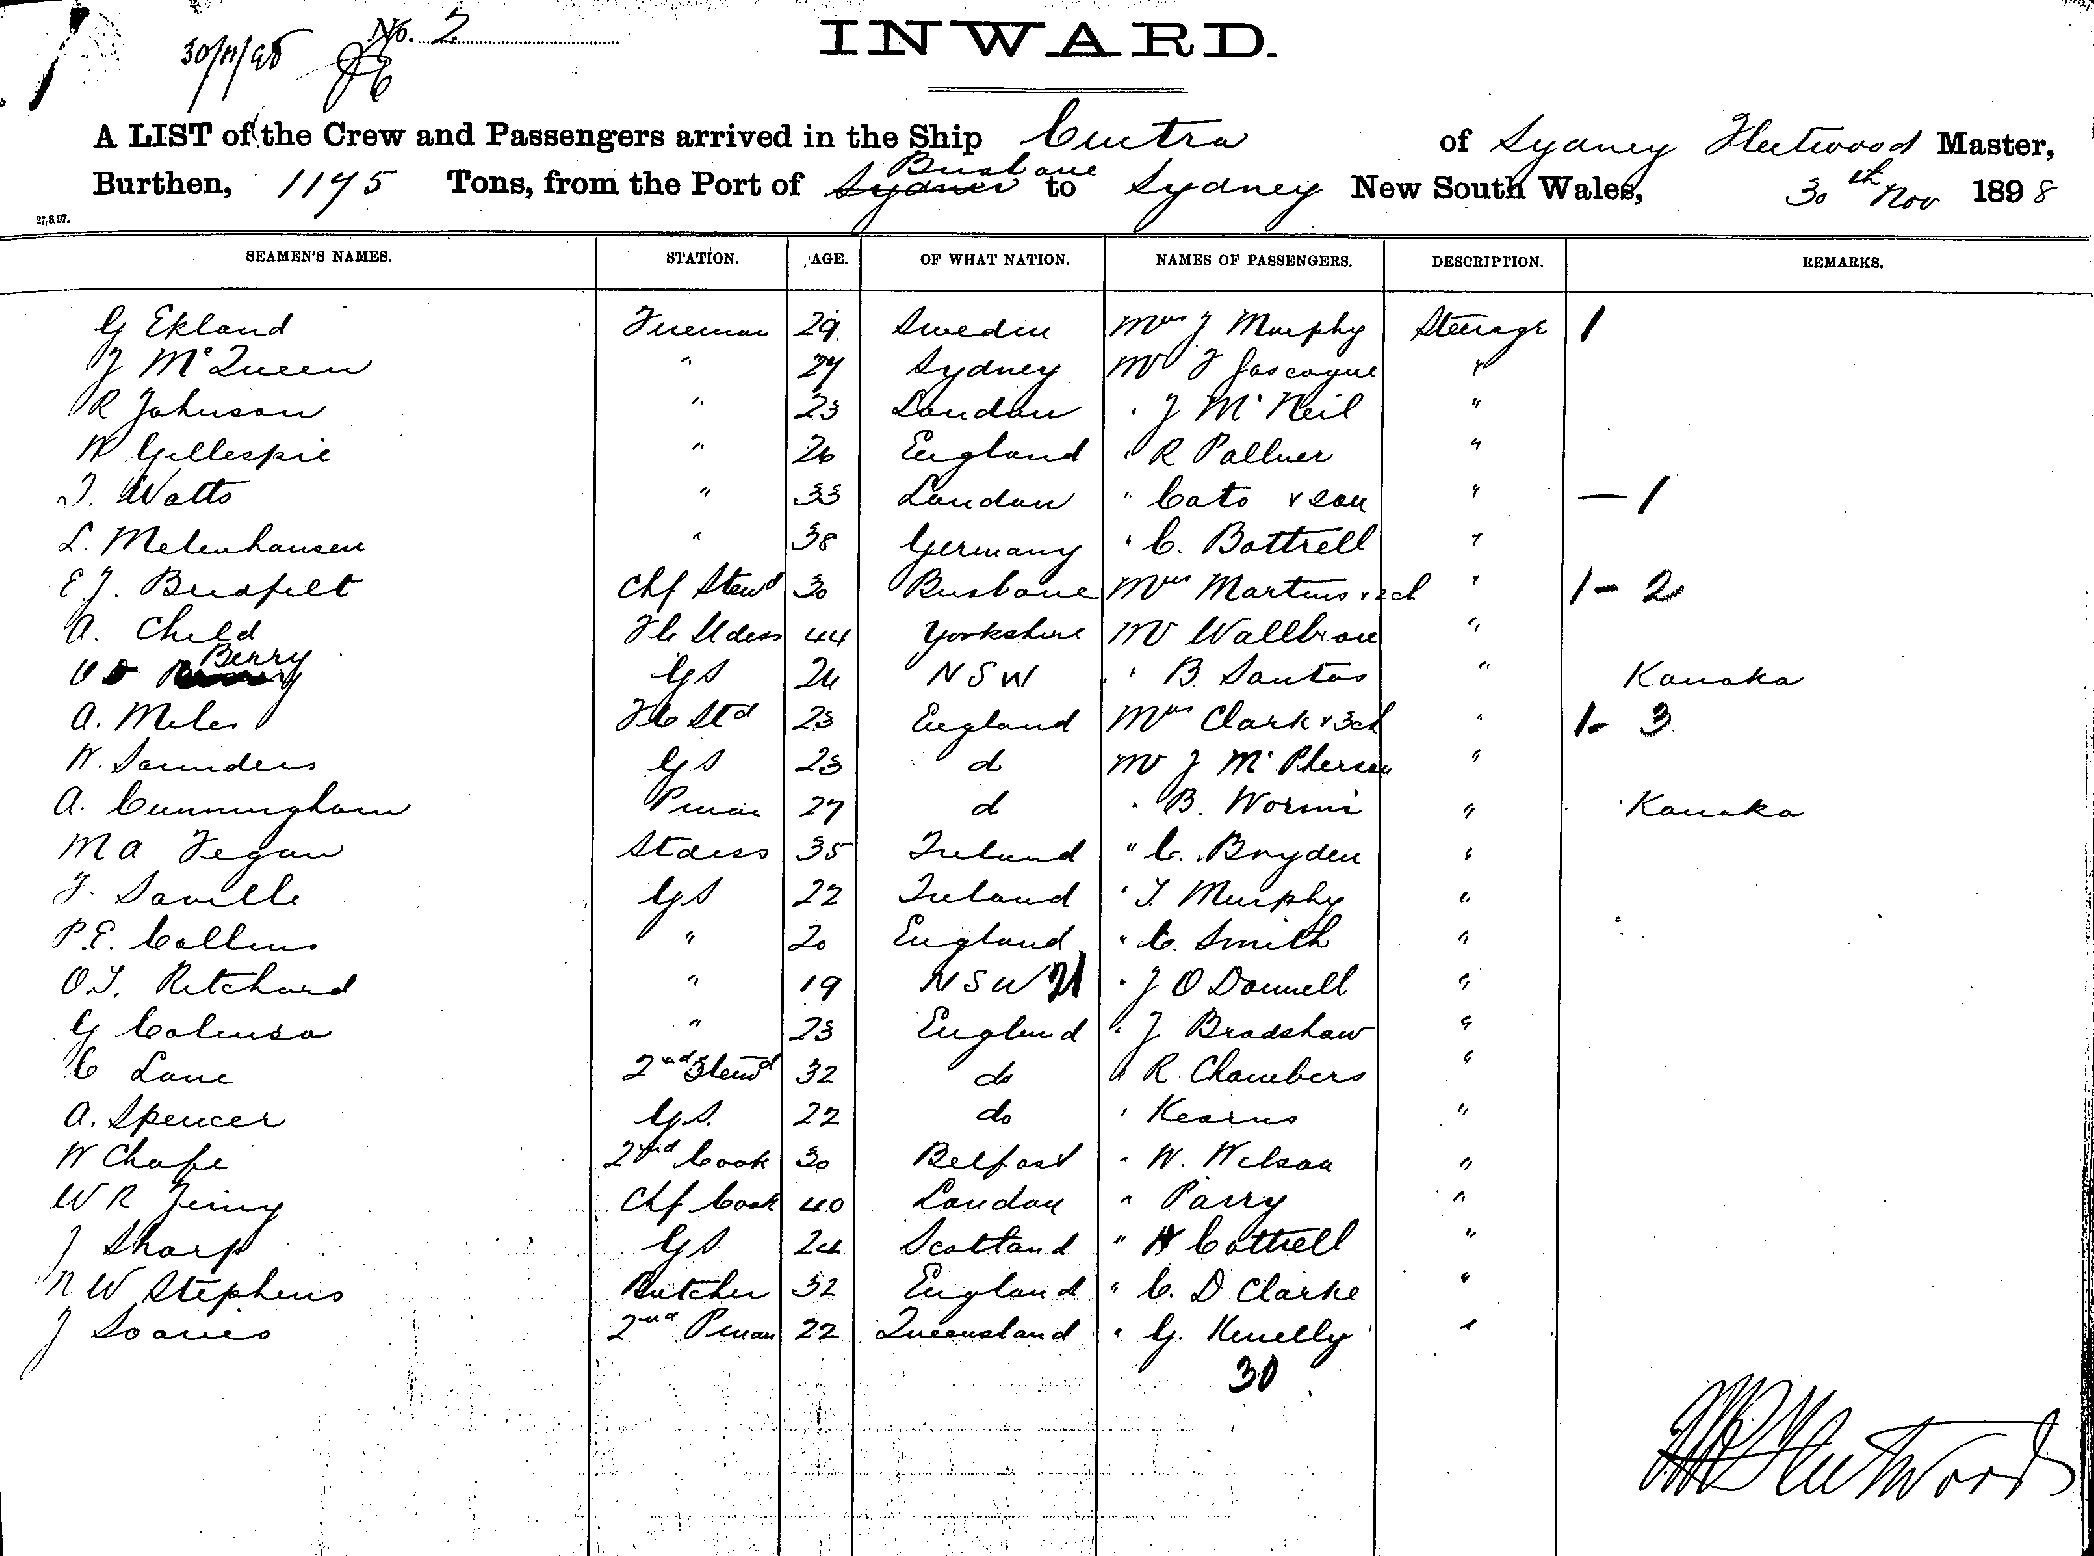 30/11/98 No. 2
INWARD.
A LIST of the Crew and Passengers arrived in the Ship Cintra of Sydney Fleetwood Master,
Burthen, 1175 Tons, from the Port of Sydney Brisbane to Sydney New South Wales, 30th Nov 1898
27.8.97.
SEAMEN'S NAMES. STATION. AGE. OF WHAT NATION. NAMES OF PASSENGERS. DESCRIPTION. REMARKS.
G Ekland Fireman 29 Sweden Mrs J Murphy Steerage 1
J McQueen " 27 Sydney Mr F Gascoyne "
R Johnson " 23 London " J McNeil "
W Gillespie " 26 England " R Pallner "
T. Watts " 33 London " Cato & son " — 1
L. Melenhausen " 38 Germany " C. Bottrell "
E J. Bridfelt Chf Stewd 30 Brisbane Mrs Martins & 2 ch " 1 - 2
A. Child F C Stdess 44 Yorkshire Mr Wallbrow "
Berry GS 24 NSW " B. Santos " Kanaka
A. Miles F C Std 23 England Mrs Clark & 3 ch " 1 - 3
W. Saunders GS 23 d Mr J McPherson "
A. Cunningham Pman 27 d " B. Wormi " Kanaka
M A Fegan Stdess 35 Ireland " C. Bryden "
F. Saville GS 22 Ireland " T. Murphy "
P.E. Collins " 20 England " C. Smith "
O.T. Ritchard " 19 NSW " J O Donnell "
G Colenso " 23 England " J. Bradshaw "
C Lane 2nd Stewd 32 do " R. Chambers "
A. Spencer GS. 22 do " Kearns "
W Chape 2nd Cook 30 Belfast " W. Wilson "
W R Jenny Chf Cook 40 London " Parry "
J Sharp GS 24 Scotland " H Cottrell "
N W Stephens Butcher 32 England " C. D Clarke "
J Soares 2nd Pman 22 Queensland " G. Kenelly "
30
Fleetwood